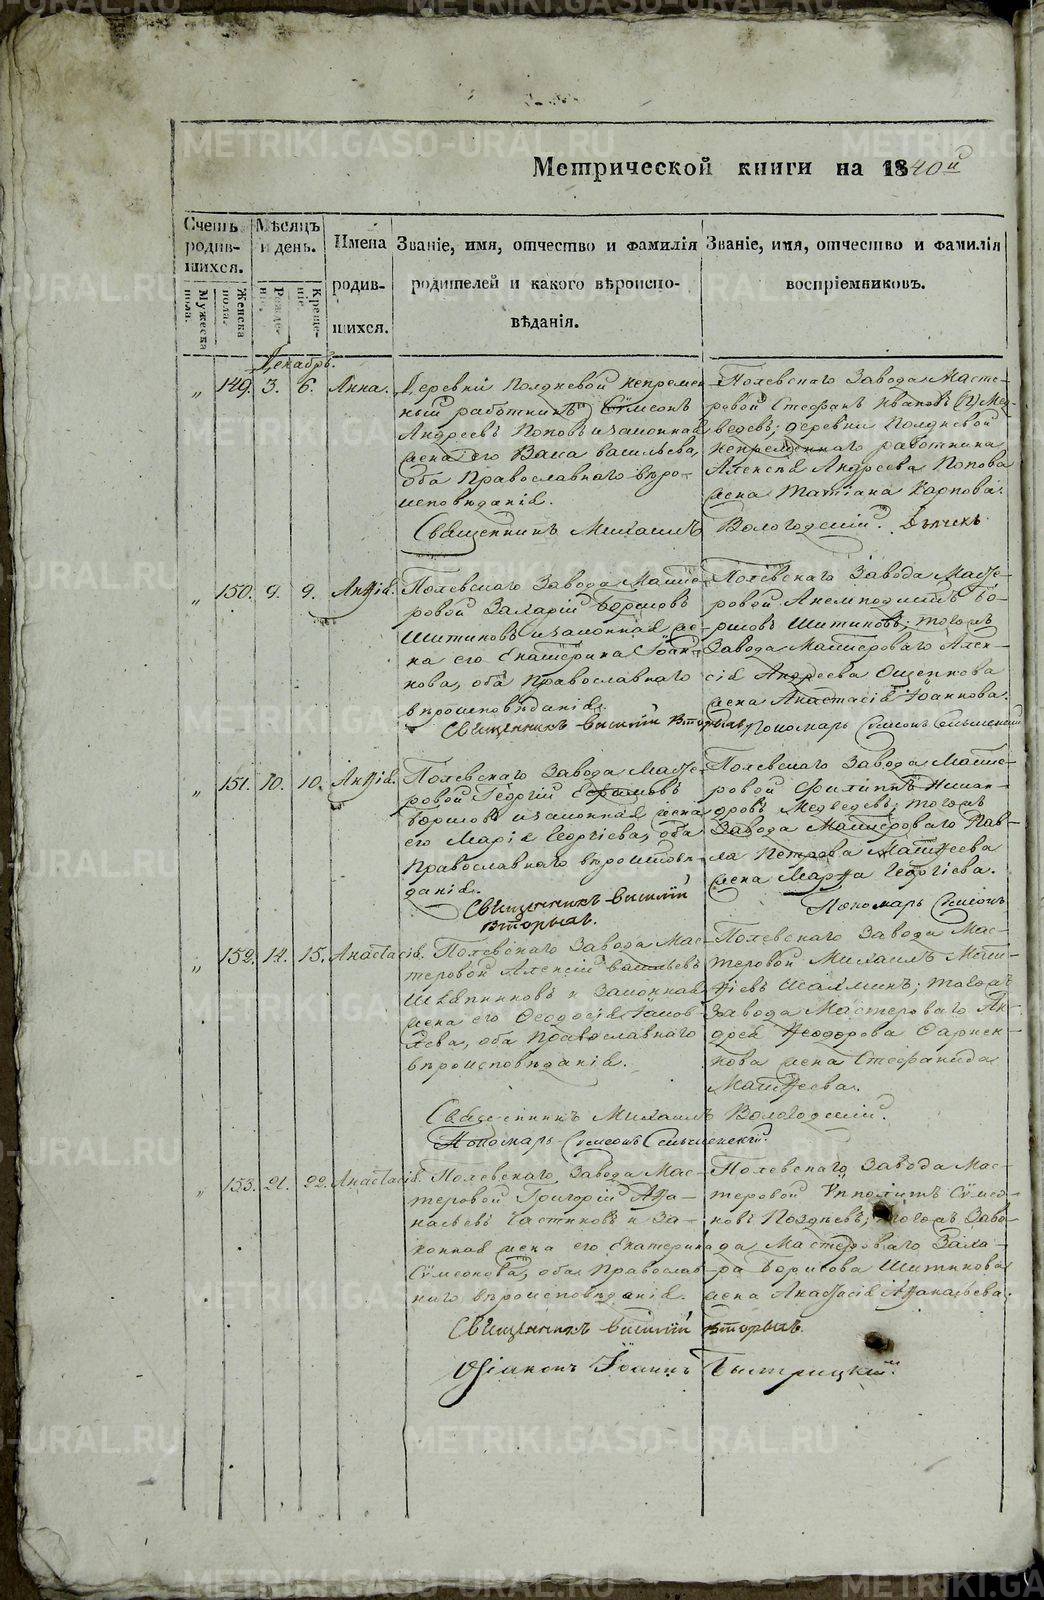 Метрической книги на 1840й
Счетъ родив- шихся.
Мужеска пола.
Женска пола.
Мѣсяцъ и день.
Рожде- нiе.
Креще- нiе.
Имена родив- шихся.
Званiе, имя, отчество и фамилiя родителей и какого вѣроиспо- вѣданiя.
Званiе, имя, отчество и фамилiя воспрiемниковъ.
Декабрь.
„ 149. 3. 6. Анна.
Деревни Полдневой непремен
ный работникъ Сѵмеонъ
Андреевъ Поповъ и законная
жена его Васса Васильева,
оба Православнаго вѣро-
исповѣданiя.
Полевскаго Завода Масте-
ровой Стефанъ Ивановъ Мед-
ведевъ; деревни Полдневой
непременнаго работника
Алексѣя Андреева Попова
жена Татiана Карпова.
Священникъ Михаилъ Вологодскiй. Дьячекъ
„ 150. 9. 9. Анѳiя.
Полевскаго Завода Масте-
ровой Захарiй Борисовъ
Шитиковъ и законная же-
на его Екатерина Iоан-
нова, оба Православнаго
вѣроисповѣданiя.
Полевскаго Завода Масте-
ровой Анемподистъ Бо-
рисовъ Шитиковъ; тогожъ
Завода Мастероваго Алек-
сiя Андреева Ощепкова
жена Анастасiя Iоаннова.
Священникъ Василiй Вторыхъ Пономарь Сѵмеонъ
„ 151. 10. 10. Анѳiя.
Полевскаго Завода Масте-
ровой Георгiй Ефимовъ
Борисовъ и законная жена
его Марiя Георгiева, оба
Православнаго вѣроисповѣ-
данiя.
Полевскаго Завода Масте-
ровой Филиппъ Никан-
дровъ Медведевъ; тогожъ
Завода Мастероваго Пав-
ла Петрова Матѳеева
жена Марѳа Георгiева.
Священникъ Василiй
Вторыхъ.
Пономарь Сѵмеонъ
„ 152. 14. 15. Анастасiя.
Полевскаго Завода Мас-
теровой Алексiй Васильевъ
Шляпниковъ и Законная
жена его Феодосiя Iаков-
лева, оба Православнаго
вѣроисповѣданiя.
Полевскаго Завода Мас-
теровой Михаилъ Мат-
ѳiевъ тогожъ
Завода Мастероваго Ан-
дрея Ѳеодорова
жена Стефанида
Матѳеева.
Священникъ Михаилъ Вологодскiй.
Пономарь Сѵмеонъ
„ 153. 21. 22. Анастасiя.
Полевскаго Завода Мас-
теровой Григорiй Аѳа-
насьевъ Частиковъ и За-
конная жена его Екатерина
Сѵмеонова, оба Православ
наго вѣроисповѣданiя.
Полевскаго Завода Мас-
теровой Ѵпполитъ Сѵмео-
новъ Позднѣевъ; тогожъ Заво-
да Мастероваго Заха-
ра Борисова Шитикова
жена Анастасiя Аѳанасьева.
Священникъ Василiй Вторыхъ.
Дiаконъ Iоаннъ Быстрицкiй.
METRIKI.GASO-URAL.RU